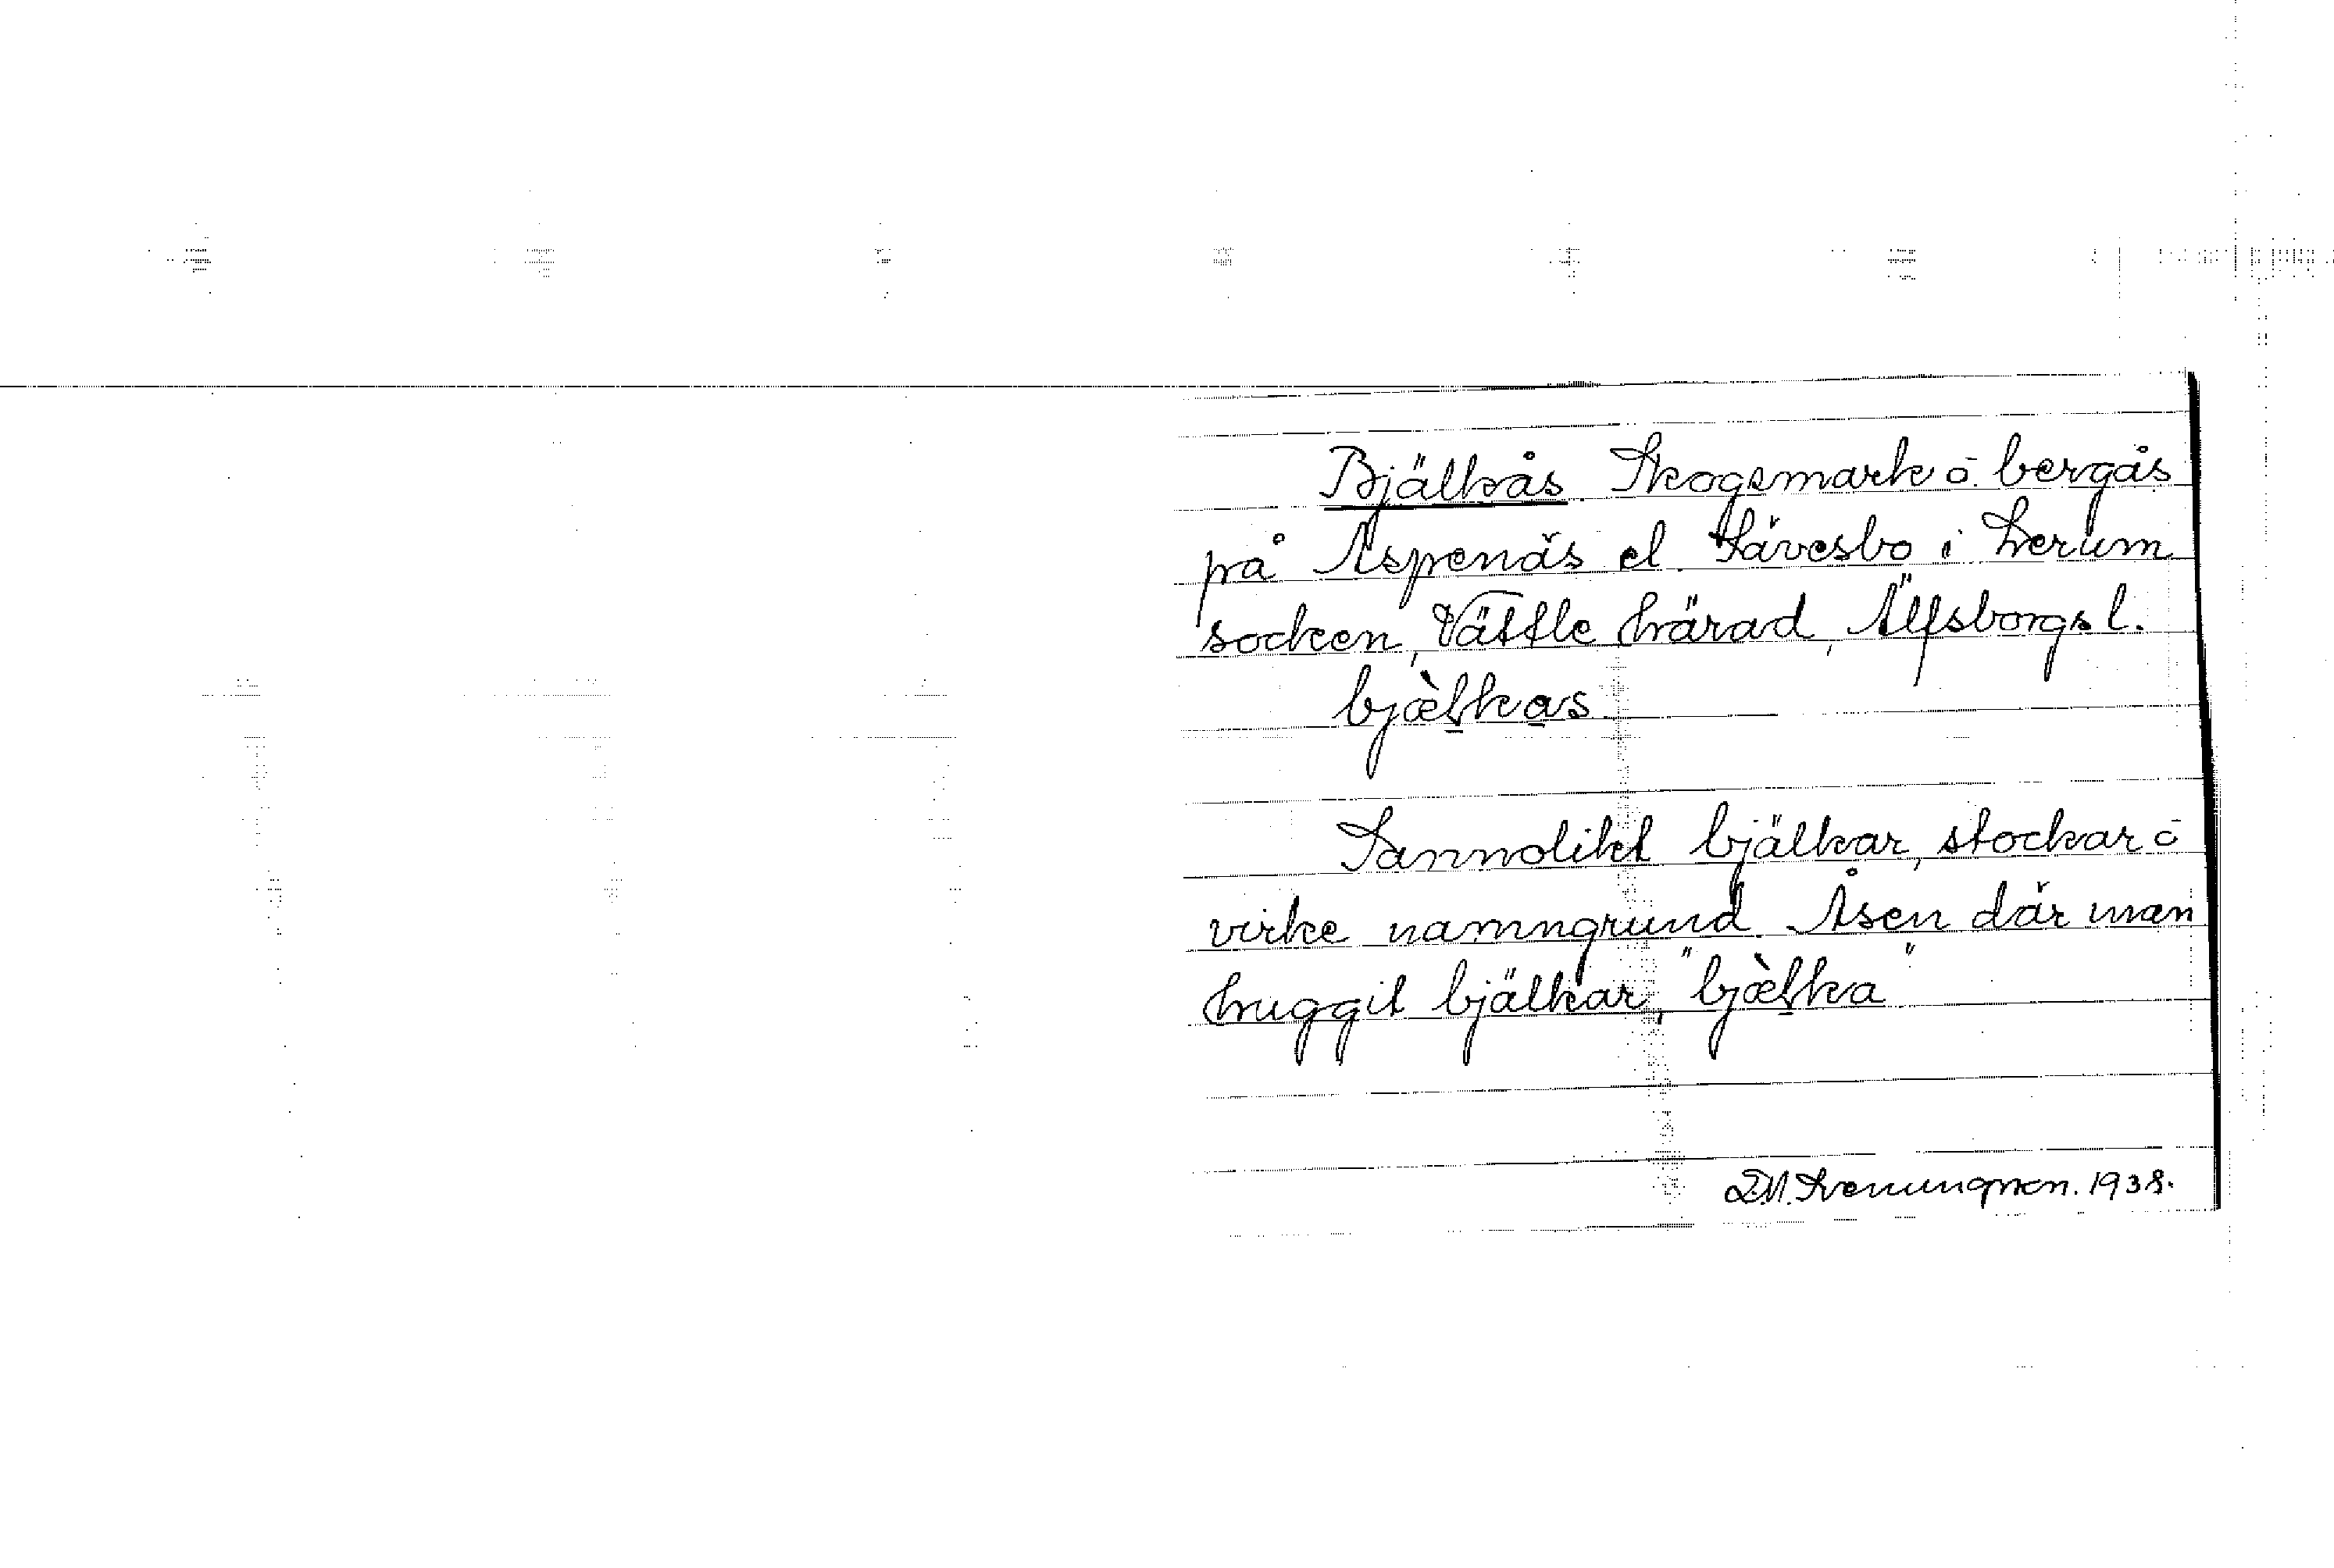 Bjälkås. Skogsmark o. bergås
på Aspenäs el. Sävesbo i Lerum
socken, Vättle härad, Älfsborgs l.
bjæ̀lkas
Sannolikt bjälkar, stockar o
virke namngrund. Åsen där man
huggit bjälkar, "bjæ̀lka"
1938.